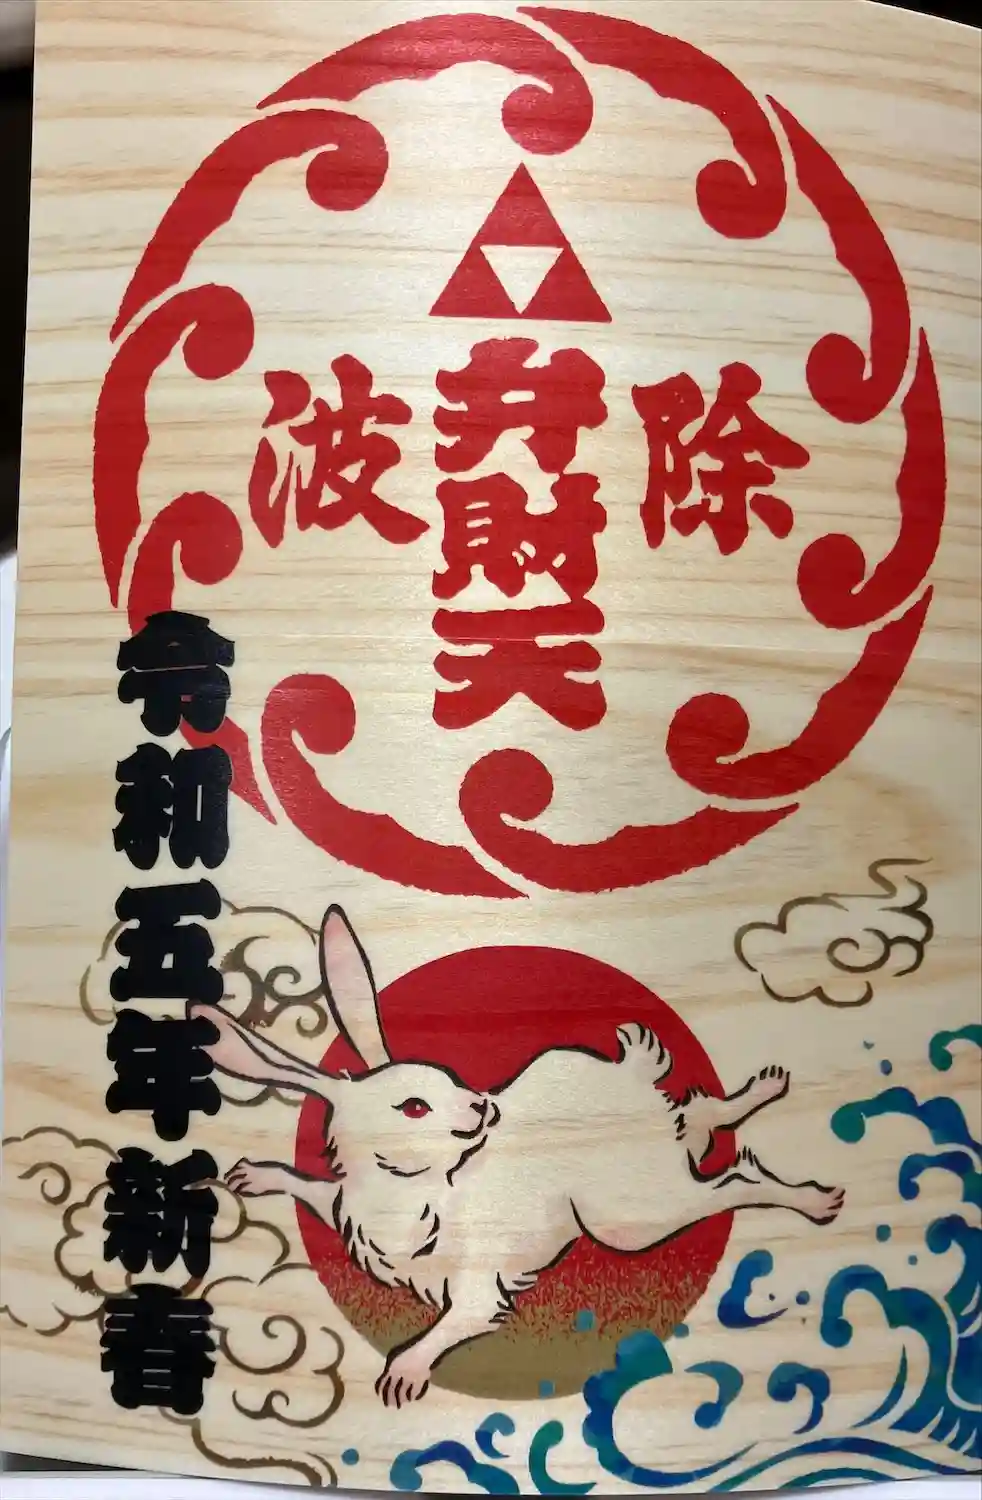 波
弁財天
除
令和五年新春